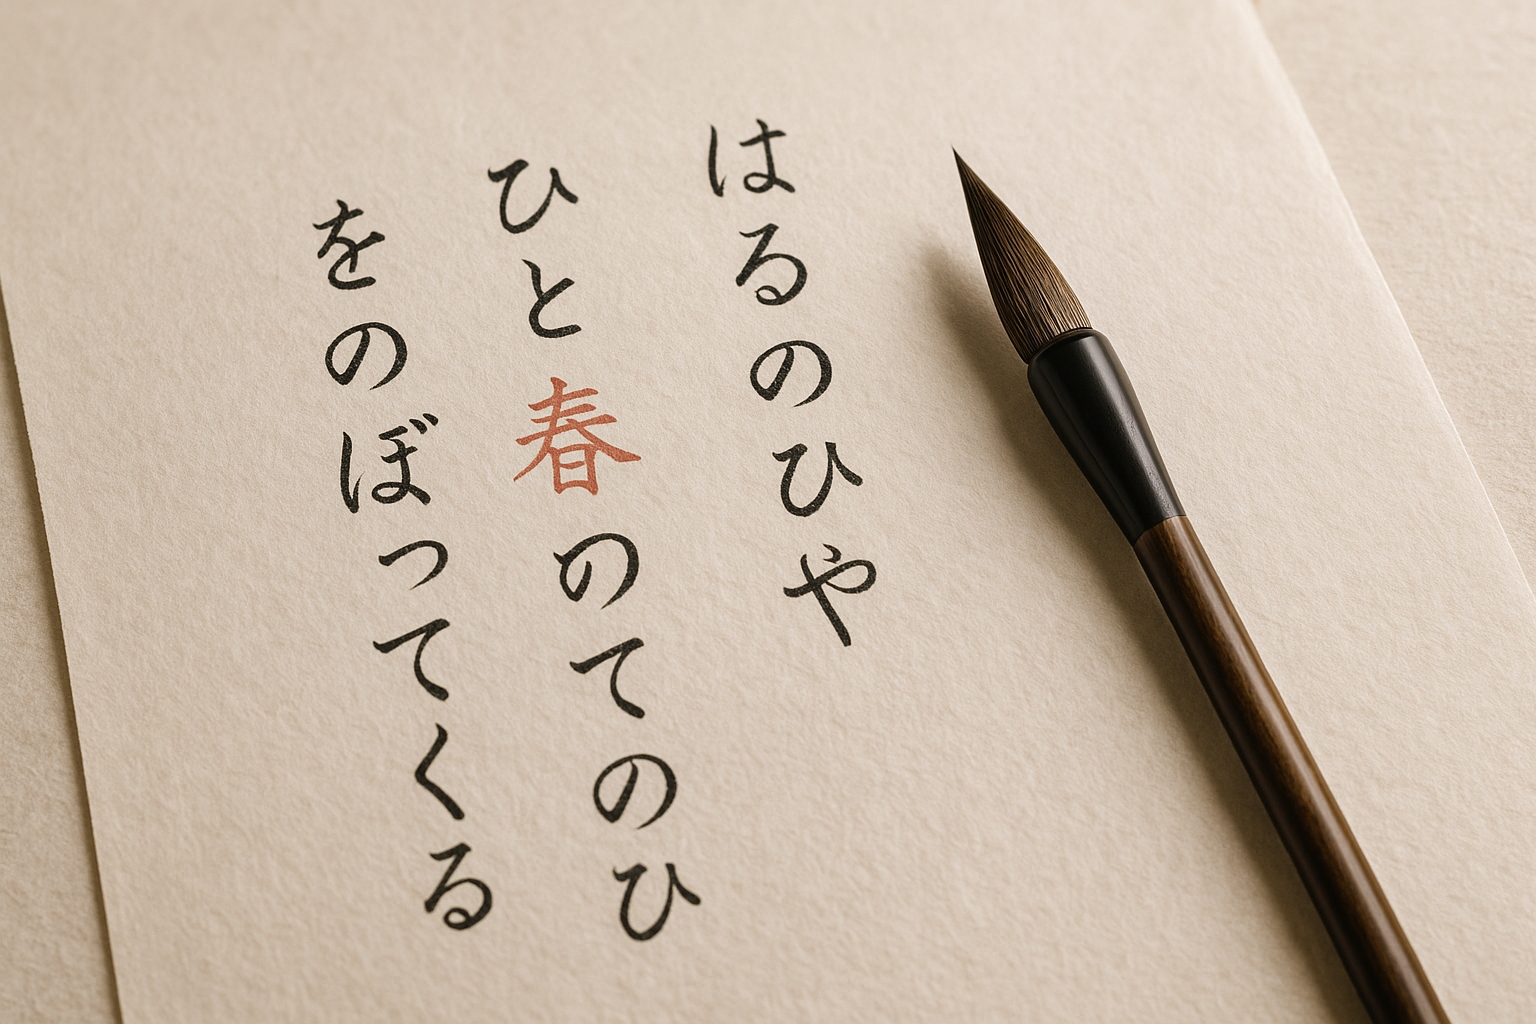 はるのひや
ひと春のてのひ
をのぼってくる